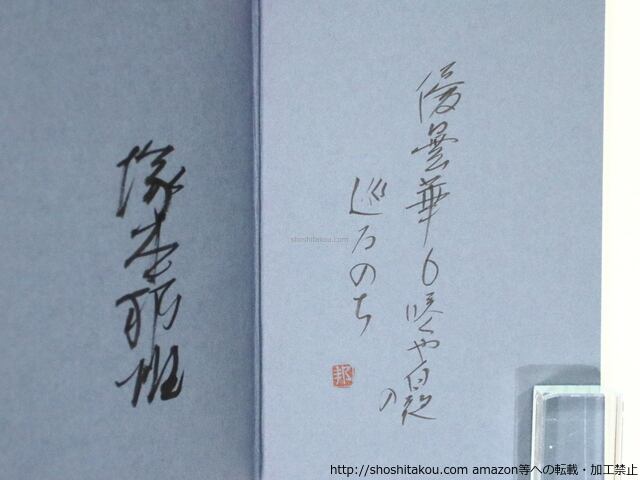 優曇華も咲くや白夜の
巡るのち
邦
塚本邦雄
shoshitakou.com
http://shoshitakou.com amazon等への転載・加工禁止